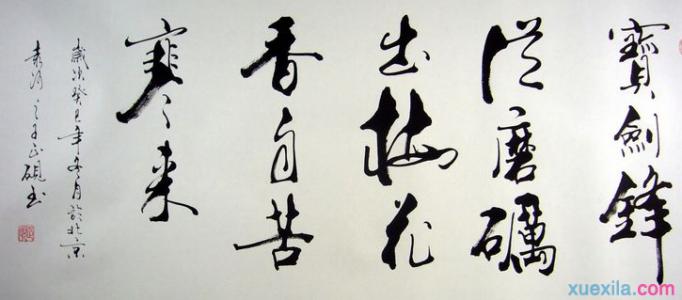 寶劍鋒
從磨礪
出梅花
香自苦
寒來
歲次癸巳年冬月於北京
xuexila.com